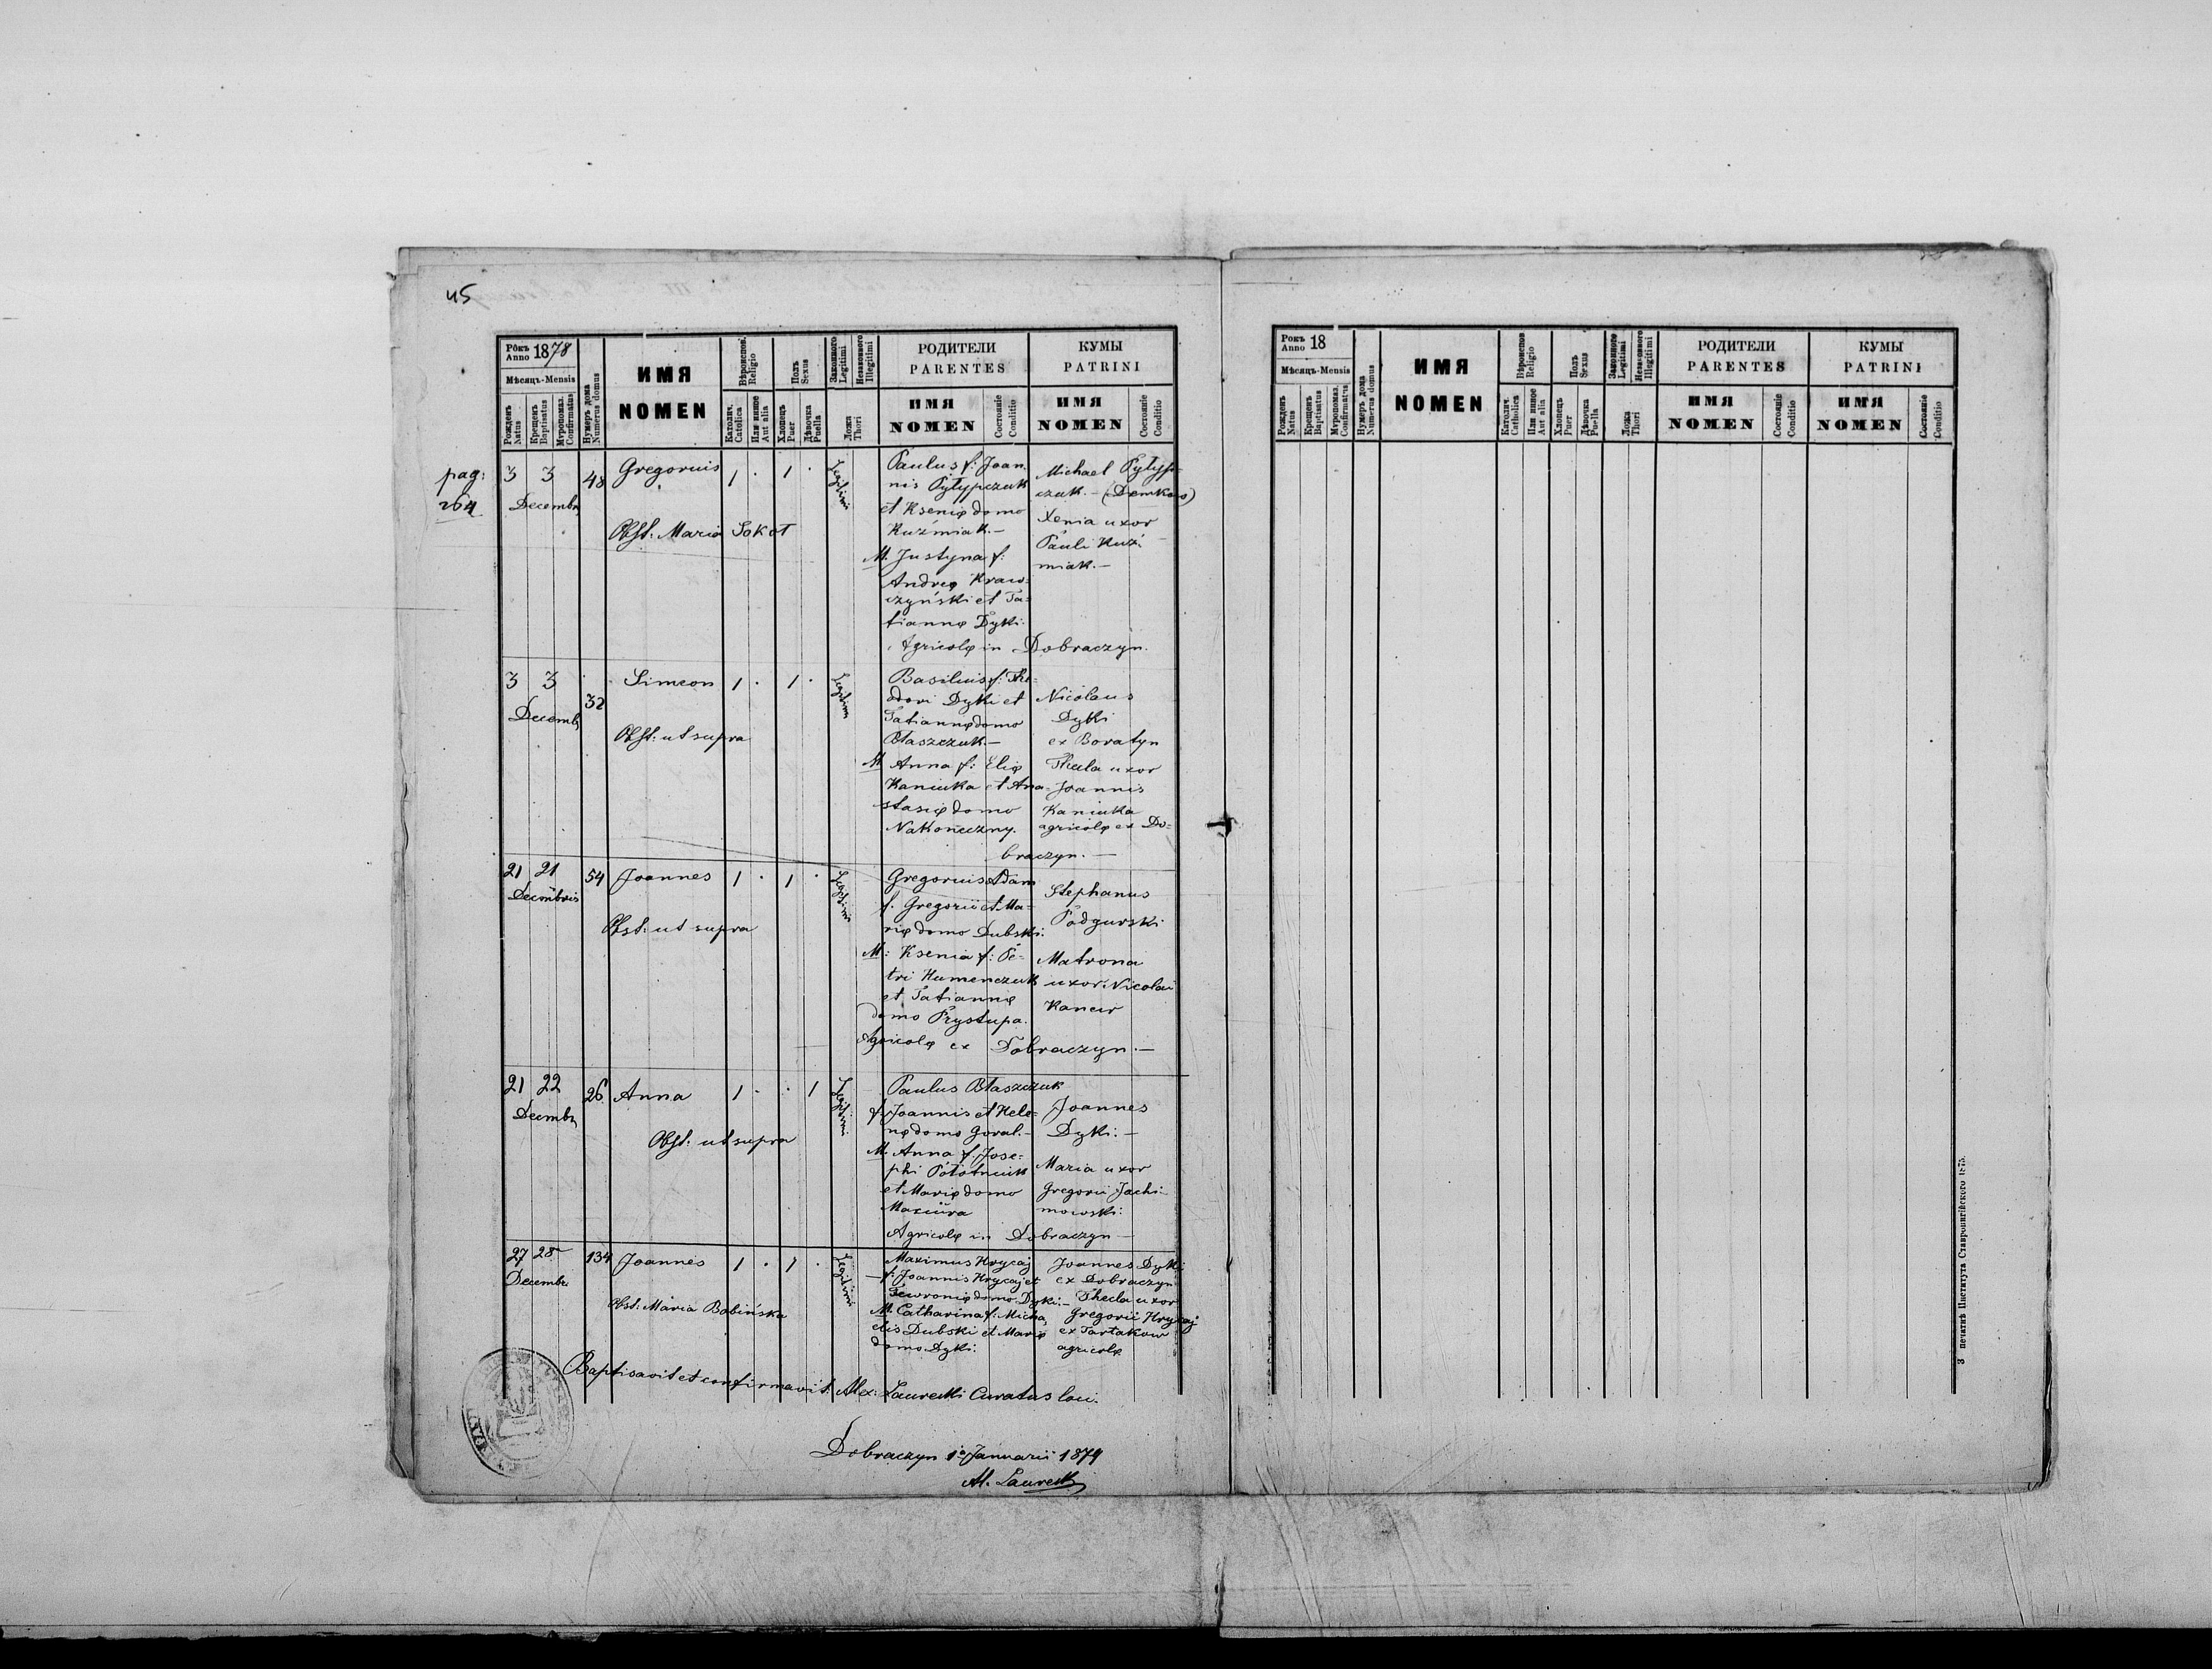 45
Рôкъ Anno 1878
Мѣсяцъ-Mensis
Рожденъ Natus
Крещенъ Baptisatus
Мѵропомаз. Confirmatus
Нумеръ дома Numerus domus
ИМЯ
NOMEN
Вѣроиспов. Religio
Католич. Catolica
Или инное Aut alia
Полъ Sexus
Хлопецъ Puer
Дѣвочка Puella
Законного Legitimi
Незаконного Illegitimi
Ложа Thori
РОДИТЕЛИ
PARENTES
ИМЯ
NOMEN
Состояніе Conditio
КУМЫ
PATRINI
ИМЯ
NOMEN
Состояніе Conditio
pag:
264
3 3 48 Gregorius 1 . 1 . Legitimi
Decembr
Obst: Maria Sokot
Paulus f: Joan-
nis Pyłypczuk
et Ksenię domo
Kuźmiak.-
M. Justyna f:
Andreę Kraw-
czyński et Ta-
tiannę Dyki.
Agricolę in Dobraczyn.
Michael Pyłyp-
czuk.- (Demkos)
Xenia uxor
Pauli Kuź-
miak.-
3 3 32 Simeon 1 . 1 . Legitimi
Decemb
Obst: ut supra
Basilius f: The-
odori Dyki et
Tatiannę domo
Błaszczuk.-
M Anna f: Elię
Kaniuka et Ana-
stasię domo
Nakoneczny.
Nicolaus
Dyki
ex Boratyn
Thecla uxor
Joannis
Kaniuka
agricolę ex Do-
braczyn.-
21 21 54 Joannes 1 . 1 . Legitimi
Decembris
Obst: ut supra
Gregorius Adam
f. Gregorii et Ma-
rię domo Dubski.
M: Ksenia f: Pe-
tri Humenczuk
et Tatiannę
domo Prystupa.
Agricolę ex Dobraczyn.-
Stephanus
Podgurski
Matrona
uxor Nicolai
Kancir
21 22 26 Anna 1 . . 1 Legitimi
Decembr
Obst: ut supra
Paulus Błaszczuk
f: Joannis et Hele-
nę domo Goral.-
M. Anna f. Jose-
phi Połotniuk
et Marię domo
Maziura
Agricolę in Dobraczyn-
Joannes
Dyki.-
Maria uxor
Gregorii Jachi-
mowski.
27 28 134 Joannes 1 . 1 . Legitimi
Decembr
Obst: Maria Bobińska
Maximus Hrycaj
f: Joannis Hrycaj et
Fewronię domo Dyki.-
M. Catharina f: Micha-
elis Dubski et Marię
domo Dyki.
Joannes Dyki
ex Dobraczyn
Thecla uxor
Gregorii Hrycaj
ex Tartakow
agricolę
Baptisavit et confirmavit: Alex: Laurecki Curatus loci.
Dobraczyn 1º Januarii 1879
Al. Laurecki
Рокъ Anno 18
Мѣсяцъ-Mensis
Рожденъ Natus
Крещенъ Baptisatus
Мѵропомаз. Confirmatus
Нумеръ дома Numerus domus
ИМЯ
NOMEN
Вѣроиспов Religio
Католич. Catholica
Или инное Aut alia
Полъ Sexus
Хлопецъ Puer
Дѣвочка Puella
Законного Legitimi
Незаконного Illegitimi
Ложа Thori
РОДИТЕЛИ
PARENTES
ИМЯ
NOMEN
Состояніе Conditio
КУМЫ
PATRINI
ИМЯ
NOMEN
Состояніе Conditio
З печатнѣ Института Ставропигійского 1875.